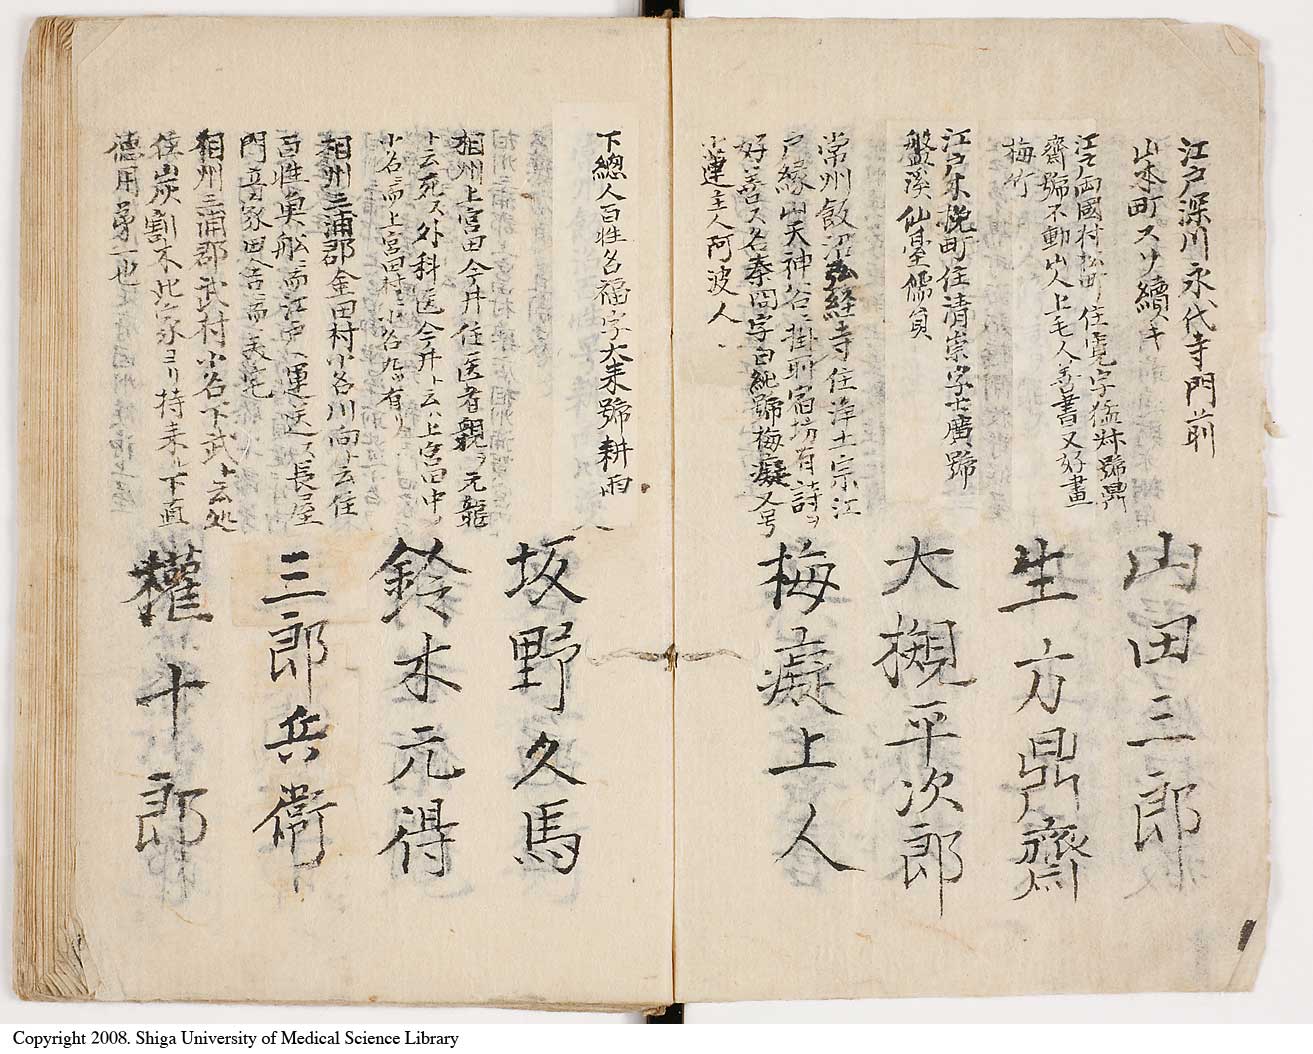 江戸深川永代寺門前
山本町スリ續キ
山田三郎
江戸両國村松町ニ住寛字猛妹號鼎
齋號不動山人上毛人善書又好畫
梅竹
生方鼎齋
江戸木挽町住清崇字士廣號
盤溪仙臺儒員
大槻平次郎
常州飯沼弘経寺住浄土宗江
戸縁山天神谷ニ掛所宿坊有詩ヲ
好善ス名泰冏字白純號梅癡又号
小蓮主人阿波人
梅癡上人
下總人百姓名福字大来號耕雨
坂野久馬
相州上宮田今井住医者親ヲ元龍
ト云死ス外科医今井ト云ハ上宮田中ノ
小名ニ而上宮田村ニ小名九ツ有リ
鈴木元得
相州三浦郡金田村小名川向ト云住
百姓奥舩ニ而江戸ヘ運送ス長屋
門普家田舎ニ而美宅
三郎兵衛
相州三浦郡武村小名下武ト云処
住炭割木此家ヨリ持来リ下直
徳用第一也
權十郎
Copyright 2008. Shiga University of Medical Science Library